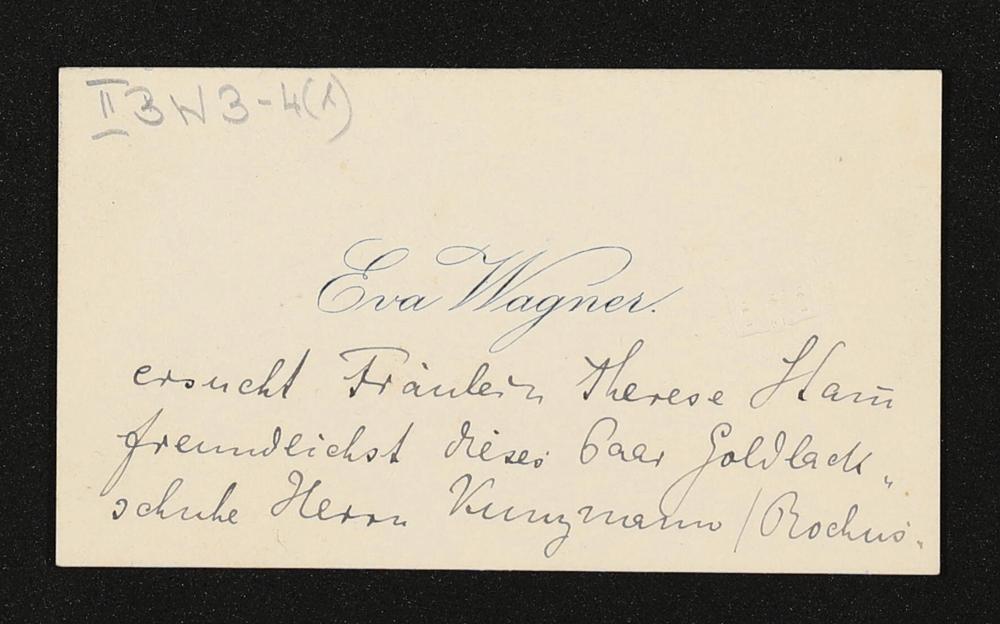 II 3 W 3-4(1)
Eva Wagner.
ersucht Fräulein Therese
freundlichst dieses Paar Goldlack„
schuhe Herrn Kunzmann / Rochus„